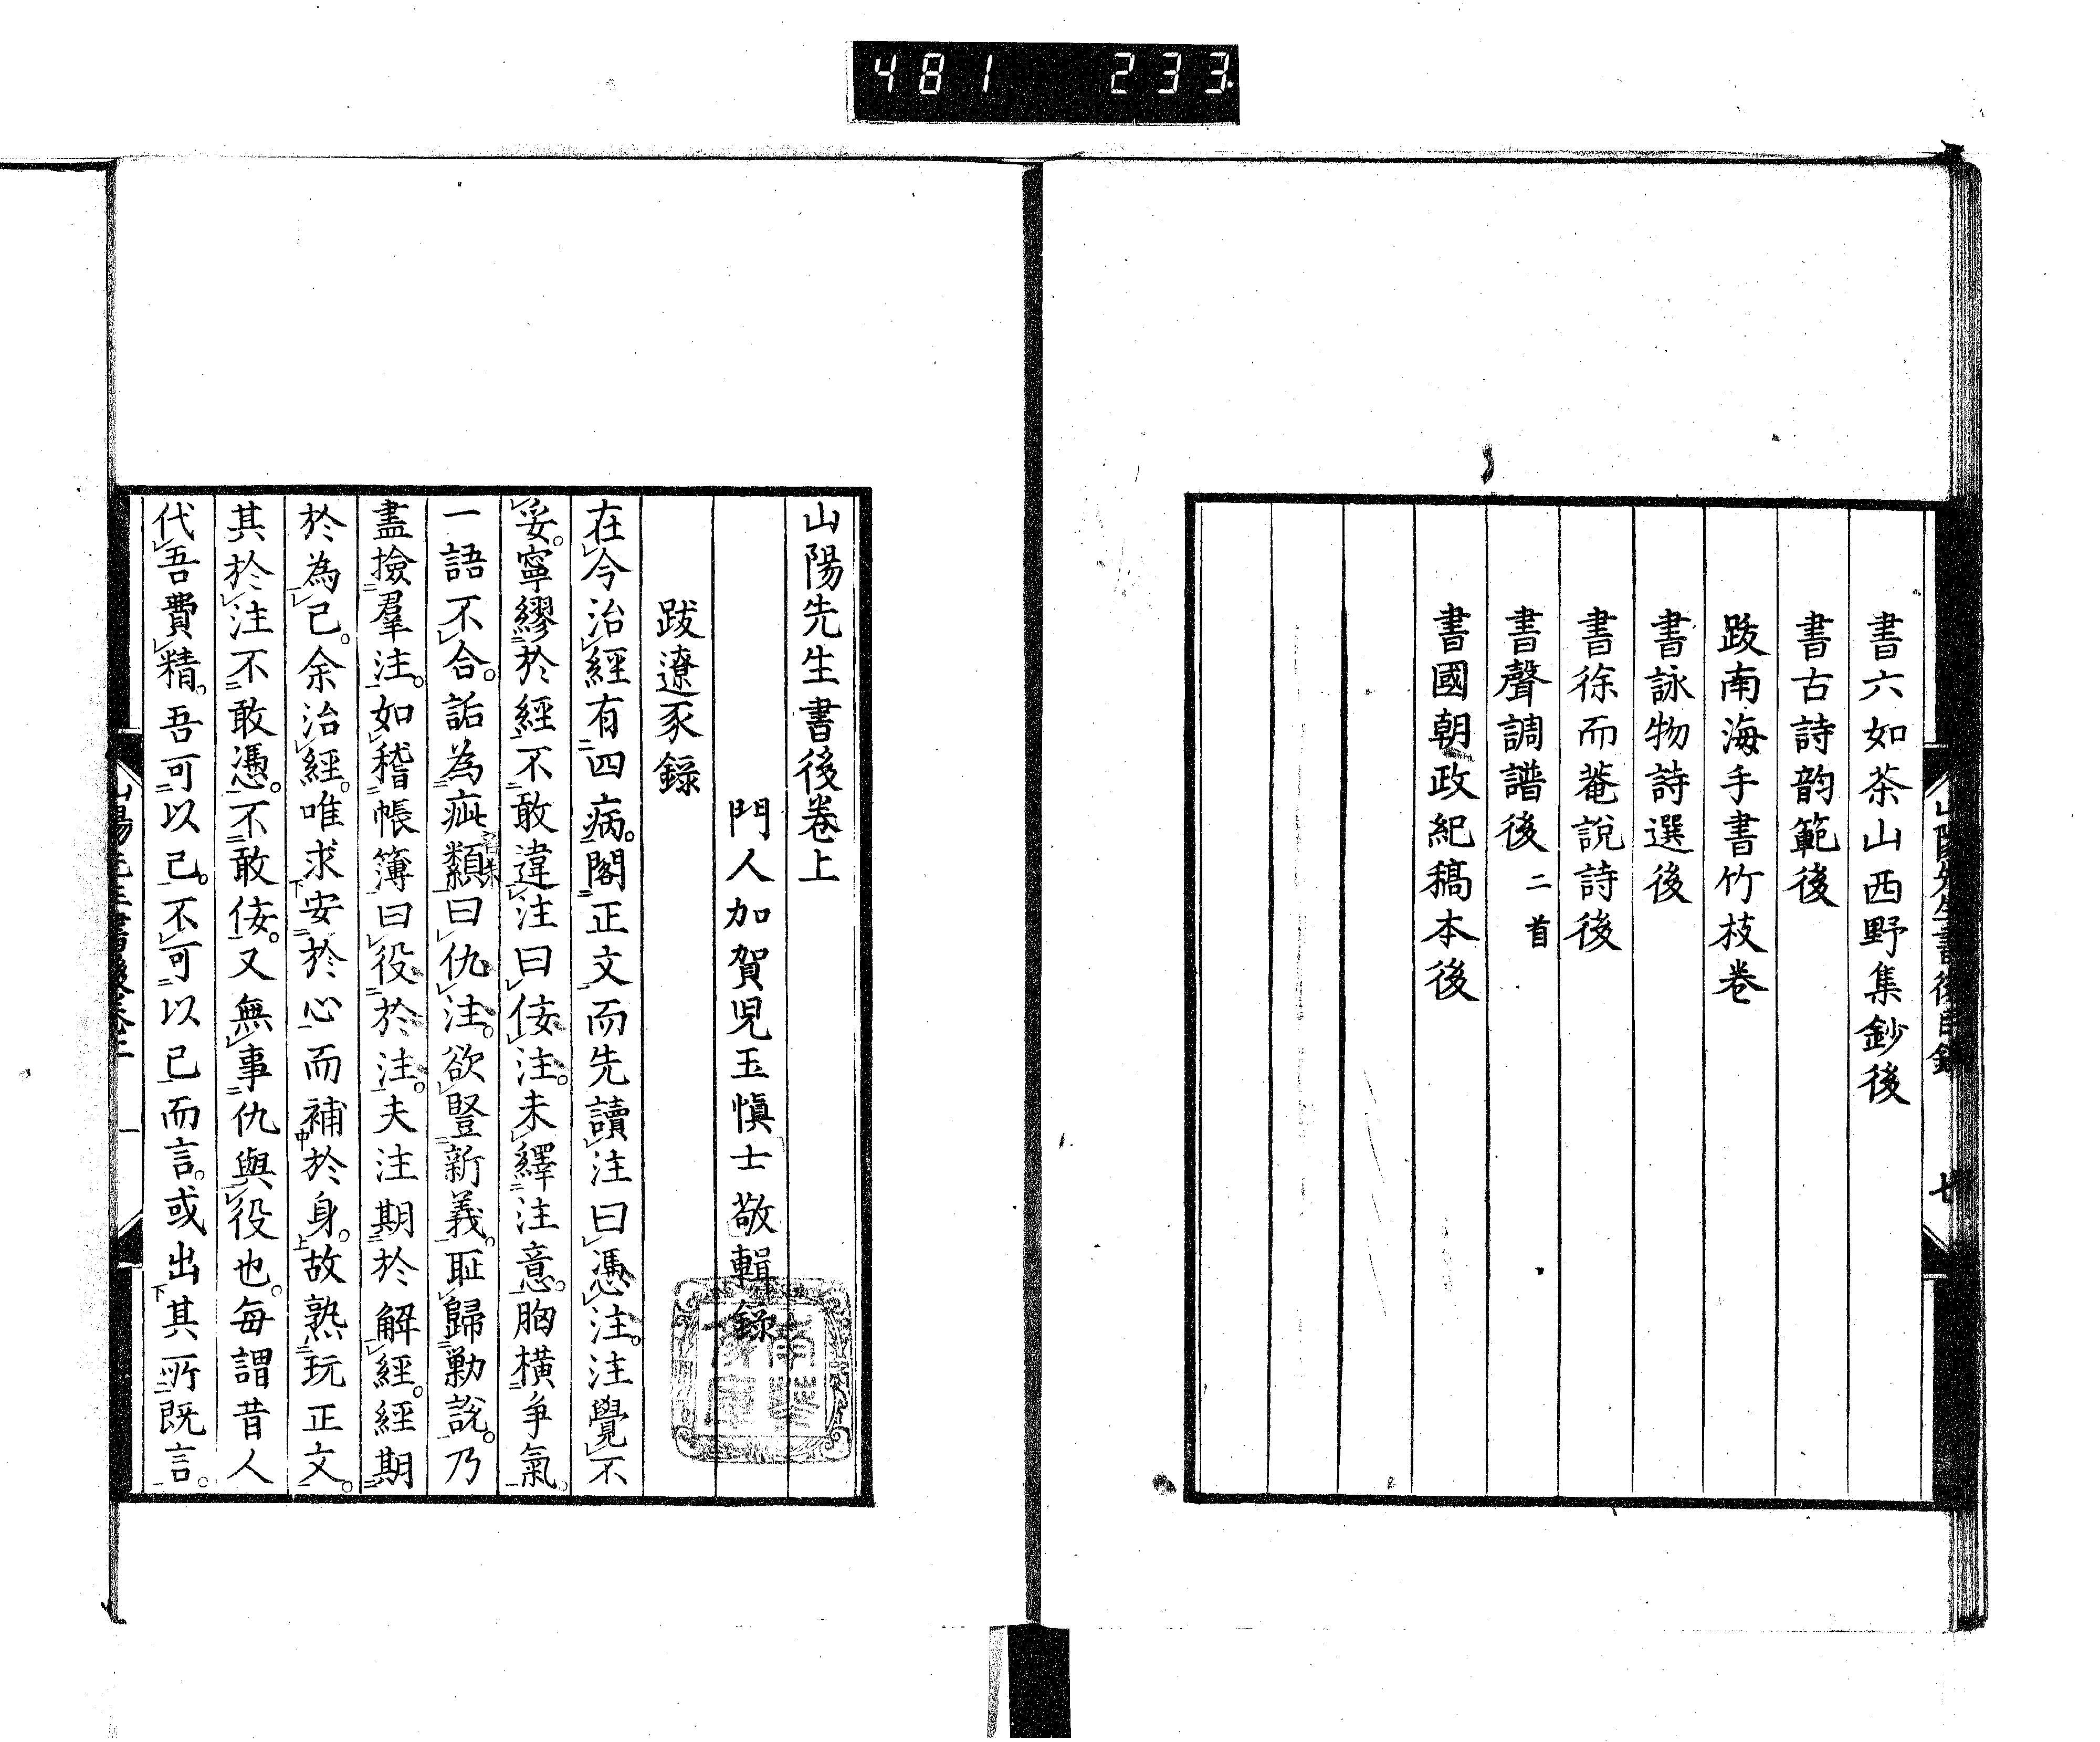 481 233
書六如茶山西野集鈔後
書古詩韵範後
跋南海手書竹枝卷
書詠物詩選後
書徐而菴說詩後
書聲調譜後 二首
書國朝政紀稿本後
山陽先生書後目錄 七
山陽先生書後卷上
門人加賀児玉愼士敬輯錄
跋遼豕錄
在今治經有四病。閣正文而先讀注曰憑注。注覺不
妥。寧繆於經不敢違注曰侫注。未繹注意。胸橫爭氣。
一語不合。詬為疵纇曰仇注。欲豎新義。耻歸勦說。乃
盡撿羣注。如稽帳簿曰役於注。夫注期於解經。經期
於為己。余治經。唯求安於心而補於身。故熟玩正文。
其於注不敢憑。不敢侫。又無事仇與役也。每謂昔人
代吾費精。吾可以已。不可以已而言。或出其所既言。
山陽先生書後卷上 一